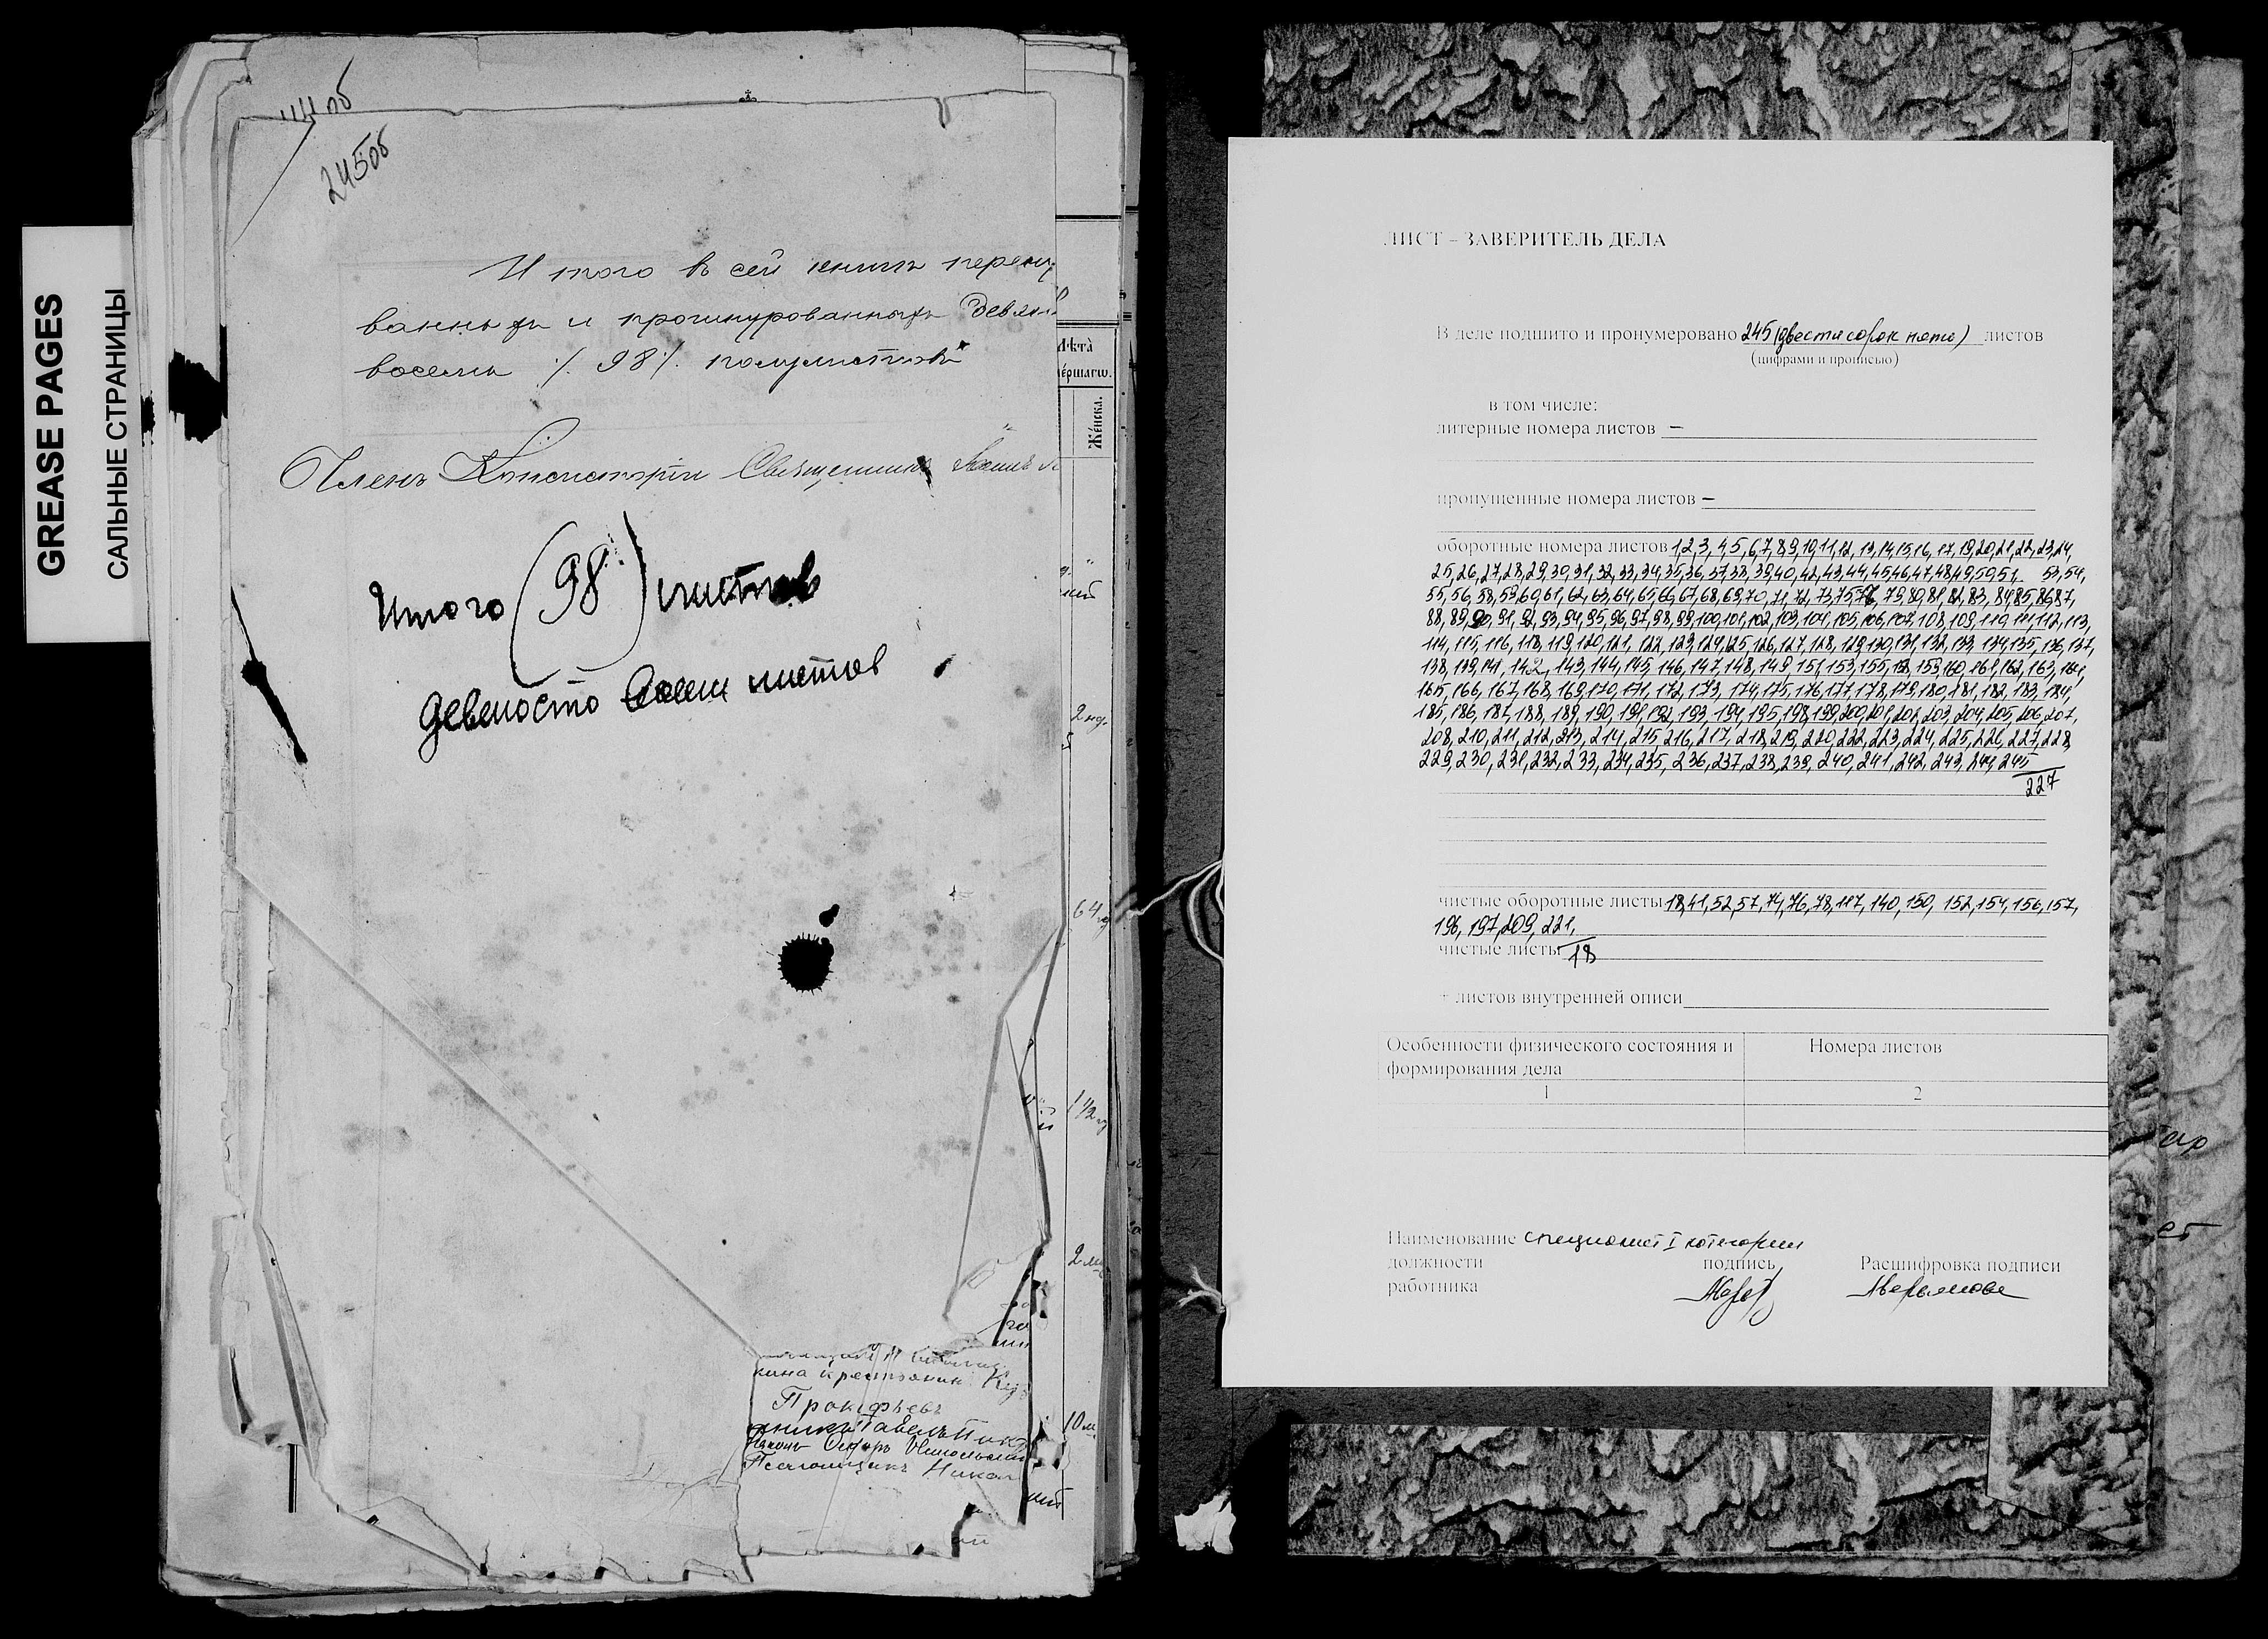 GREASE PAGES
САЛЬНЫЕ СТРАНИЦЫ
245об
Итого въ сей книгѣ перену
ванныхъ и прошнурованныхъ девян
восемь /. 98 /. полулистовъ
Членъ Консисторіи Священникъ
Итого (98) листов
девяносто восем листов
Лѣта
Женска.
2 нд.
10 м
2 м
кина крестьянин
Прокофьевъ
Павелъ
Псаломщикъ Никол
ЛИСТ – ЗАВЕРИТЕЛЬ ДЕЛА
В деле подшито и пронумеровано 245 (двести сорок пять) листов
(цифрами и прописью)
в том числе:
литерные номера листов –
пропущенные номера листов –
оборотные номера листов 1,2,3,4,5,6,7,8,9,10,11,12,13,14,15,16,17,19,20,21,22,23,24,
25,26,27,28,29,30,31,32,33,34,35,36,37,38,39,40,42,43,44,45,46,47,48,49,50,51. 53,54,
55,56,58,59,60,61,62,63,64,65,66,67,68,69,70,71,72,73,75,77, 79,80,81,82,83,84,85,86,87,
88,89,90,91,92,93,94,95,96,97,98,99,100,101,102,103,104,105,106,107,108,109,110,111,112,113,
114,115,116,118,119,120,121,122,123,124,125,126,127,128,129,130,131,132,133,134,135,136,137,
138,139,141,142,143,144,145,146,147,148,149,151,153,155,158,159,160,161,162,163,164,
165,166,167,168,169,170,171,172,173,174,175,176,177,178,179,180,181,182,183,184,
185,186,187,188,189,190,191,192,193,194,195,198,199,200,201,202,203,204,205,206,207,
208,210,211,212,213,214,215,216,217,218,219,220,222,223,224,225,226,227,228,
229,230,231,232,233,234,235,236,237,238,239,240,241,242,243,244,245
227
чистые оборотные листы 18,41,52,57,74,76,78,117,140,150,152,154,156,157,
196,197,209,221,
чистые листы 18
+ листов внутренней описи
Особенности физического состояния и
формирования дела
Номера листов
1
2
Наименование специалист I категории
должности
работника
подпись
Расшифровка подписи